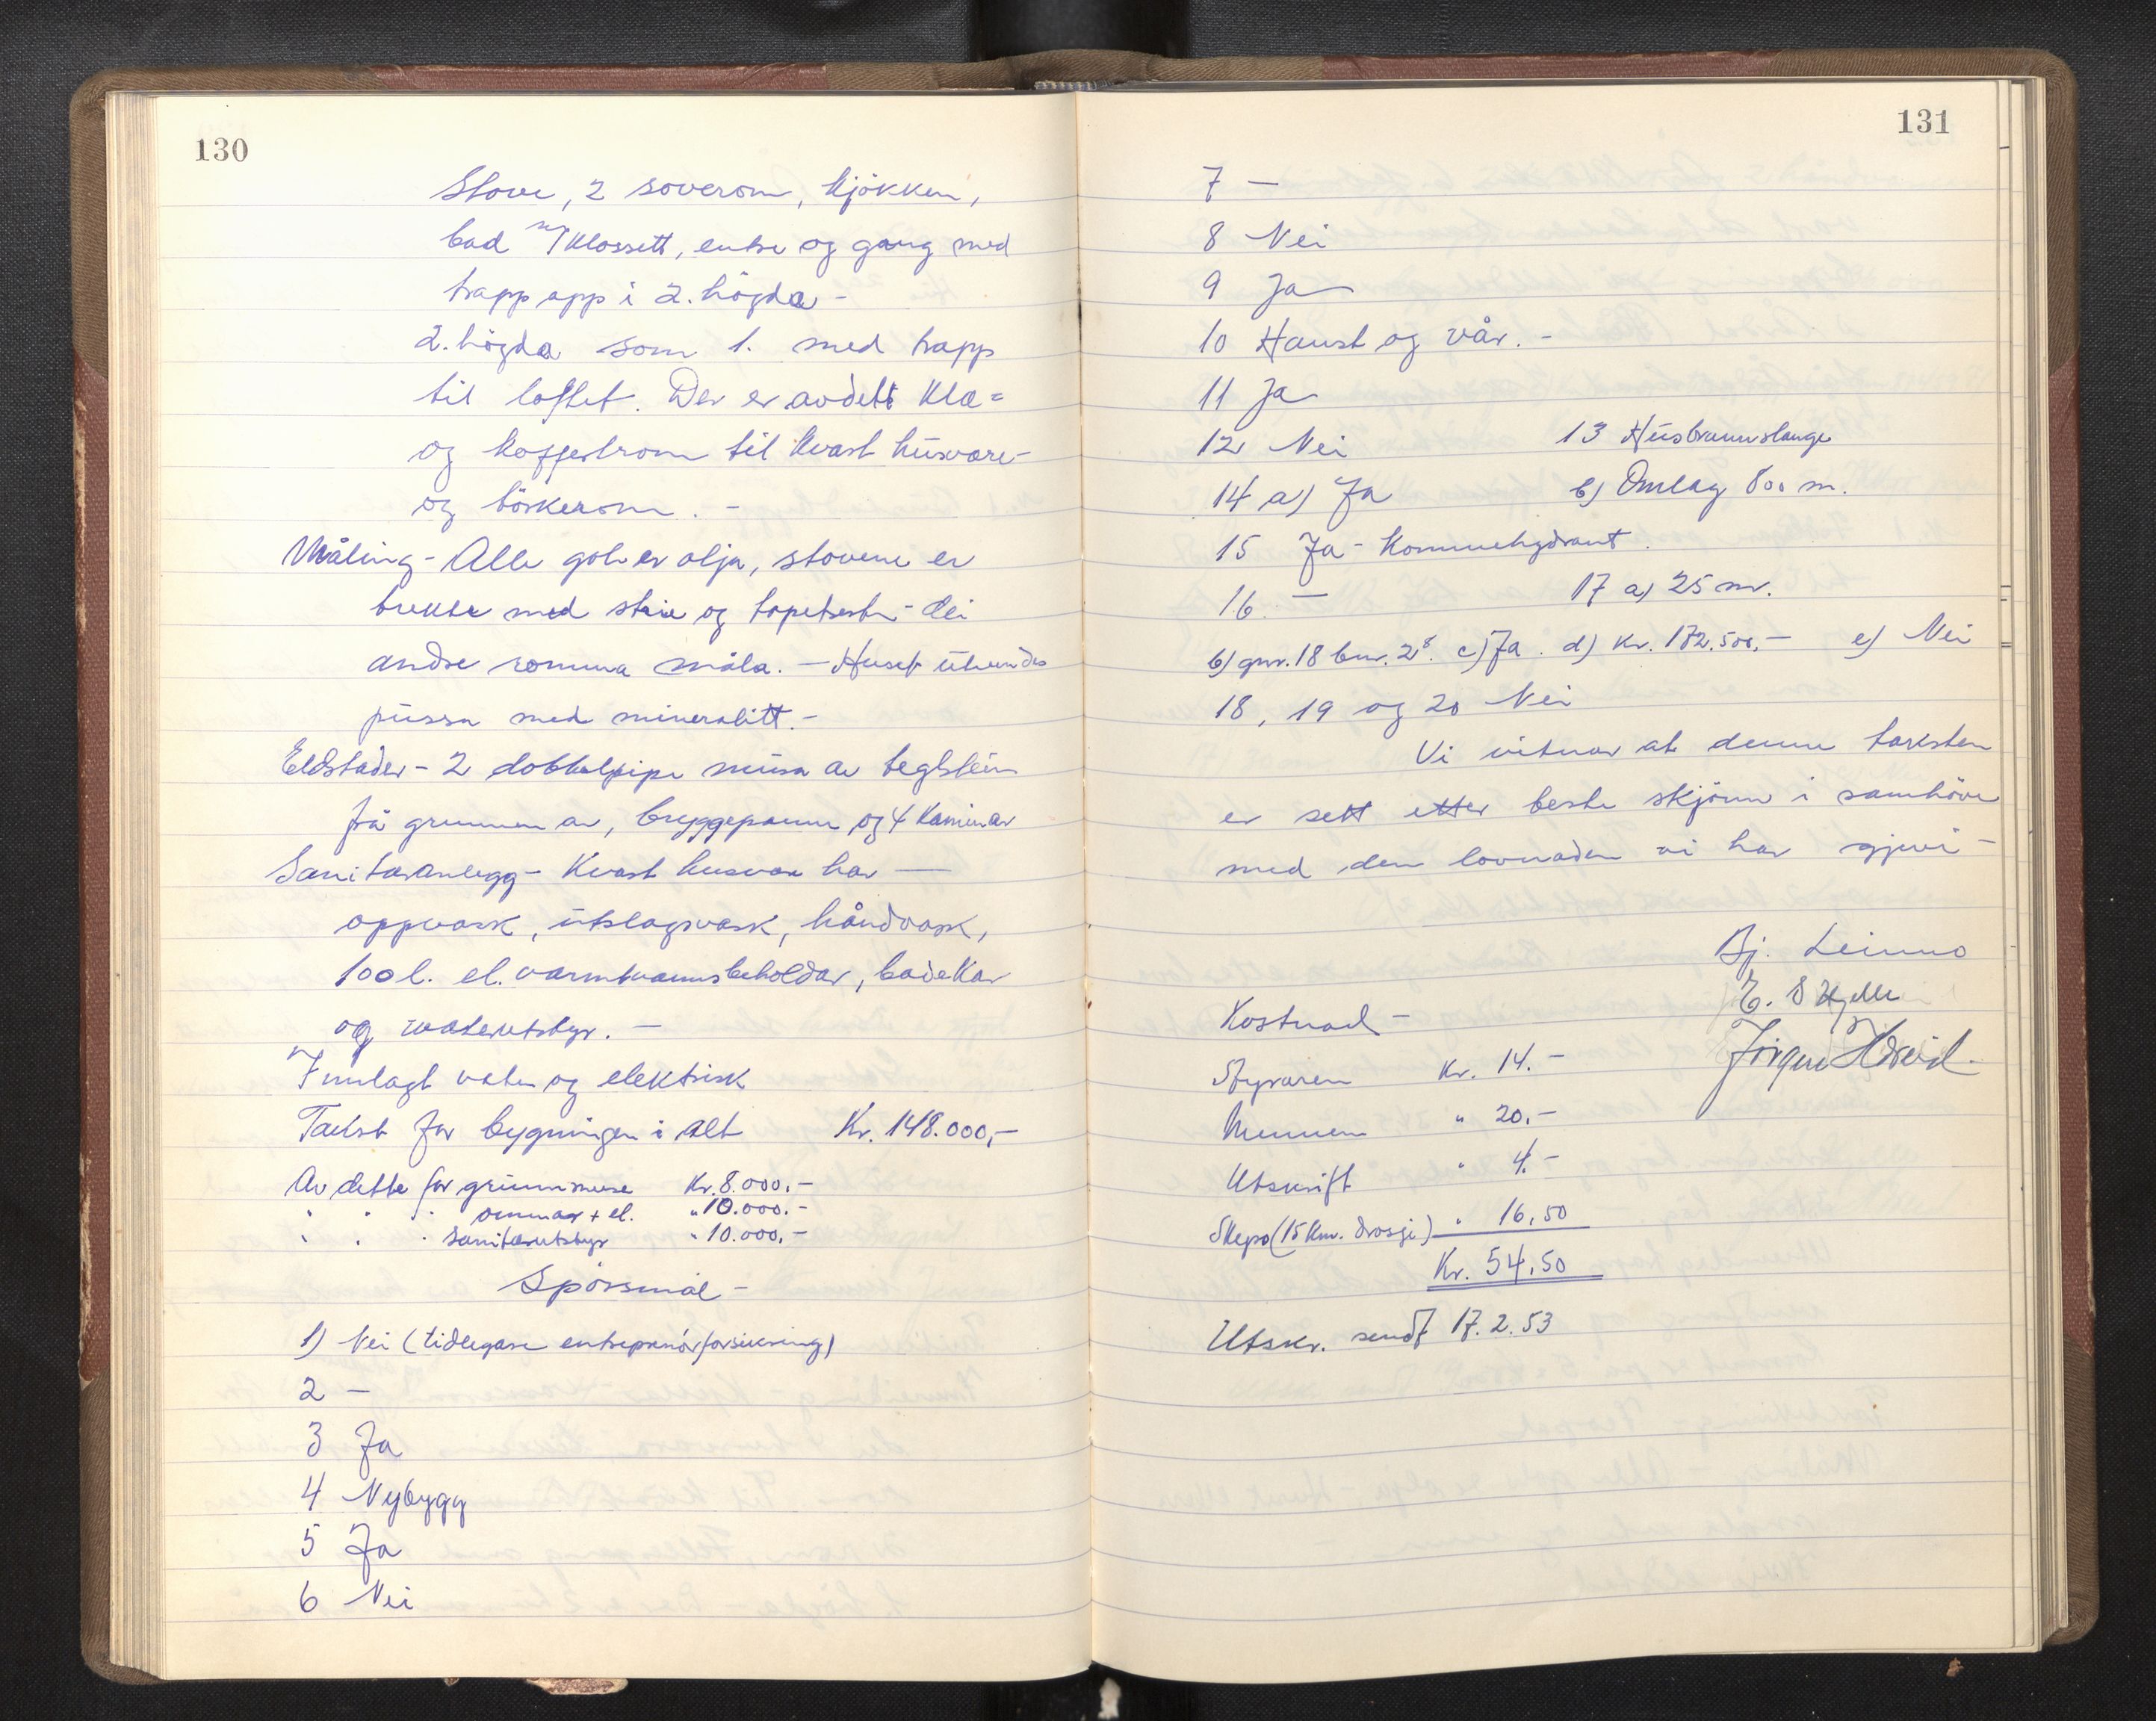 130
Stove, 2 soverom, kjökken,
bad m/klossett, entre og gang med
trapp opp i 2. högda -
2. högda som 1. med trapp
til loftet. Der er avdelt kle=
og koffertrom til kvart husvære-
og törkerom. -
Måling - Alle golv er olja, stovene er
trekte med strie og tapetserte - dei
andre romma måla. - Huset utvendes
pussa med mineralitt. -
Eldstader - 2 dobbelpipe mura av teglstein
frå grunnen av, bryggepanne og 4 kaminar
Sanitæranlegg - Kvart husvære har —
oppvask, utslagsvask, håndvask,
100 l. el. varmtvannsbeholdar, badekar
og waterutstyr. —
Innlagt vatn og elektrisk
Takst for bygningen i alt Kr. 148.000,-
Av dette for grunnmure Kr. 8.000.-
" " " omnar + el. " 10.000.-
" " " sanitærutstyr " 10.000,-
Spörsmål -
1) Nei (tidlegare entreprenörforsikring)
2 -
3 Ja
4 Nybygg
5 Ja
6 Nei
131
7 —
8 Nei
9 Ja
10 Haust og vår. -
11 Ja
12 Nei 13 Husbrannslange
14 a) Ja b) Omlag 800 m.
15 Ja - Kommehydrant.
16. — 17 a) 25 m.
b) gnr. 18 bnr. 28. c) Ja. d) Kr. 172.500,- e) Nei
18, 19 og 20 Nei
Vi vitnar at denne taksten
er sett etter beste skjönn i samhöve
med den lovnaden vi har gjevi -
Bj. Leirmo
E. S Hjelle
Kostnad -
Jörgen
Styraren Kr. 14. -
Mennene " 20.-
Utskrift " 4. -
Skyss (15 km. drosje) " 16,50
Kr. 54,50
Utskr. sendt 17.2.53